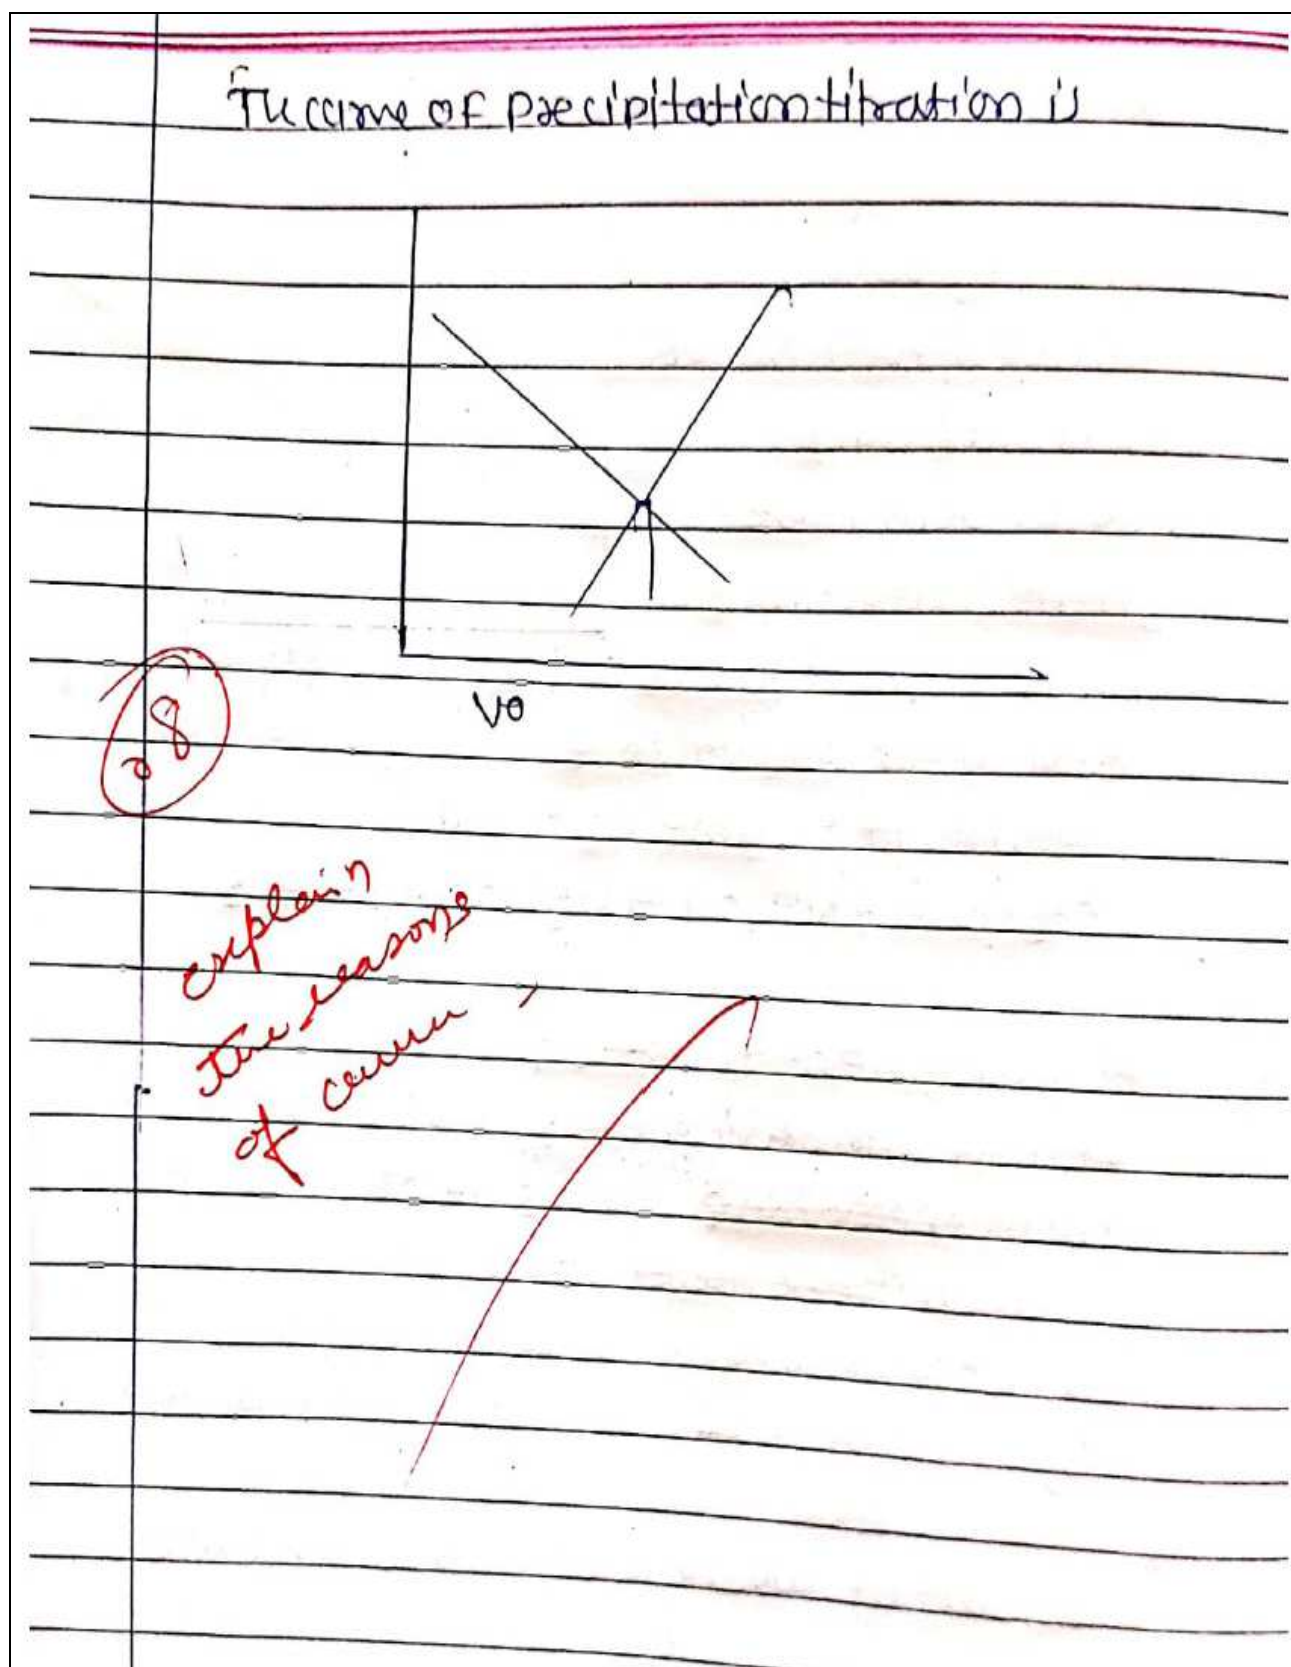 The curve of precipitation titration is
Vo
08
explain
the reasons
of curve